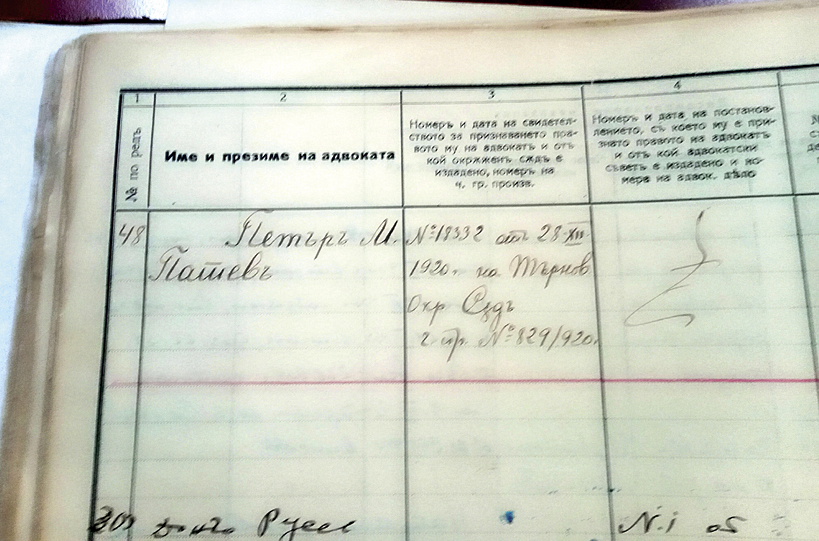 1
2
3
4
№ по редъ
Име и презиме на адвоката
Номеръ и дата на свидетел-
ството за признаването пра-
вото му на адвокатъ и отъ
кой окрѫженъ сѫдъ е
издадено, номеръ на
ч. гр. произв.
Номеръ и дата на постанов-
лението, съ което му е при-
знато правото на адвокатъ
и отъ кой адвокатски
съветъ е издадено и но-
мера на адвок. дѣло
48
Петъръ М.
Пашевъ
№ 18332 отъ 28-XII
1920. на Търнов
Окр Сѫдъ
ч. гр. № 829/920.
Русе